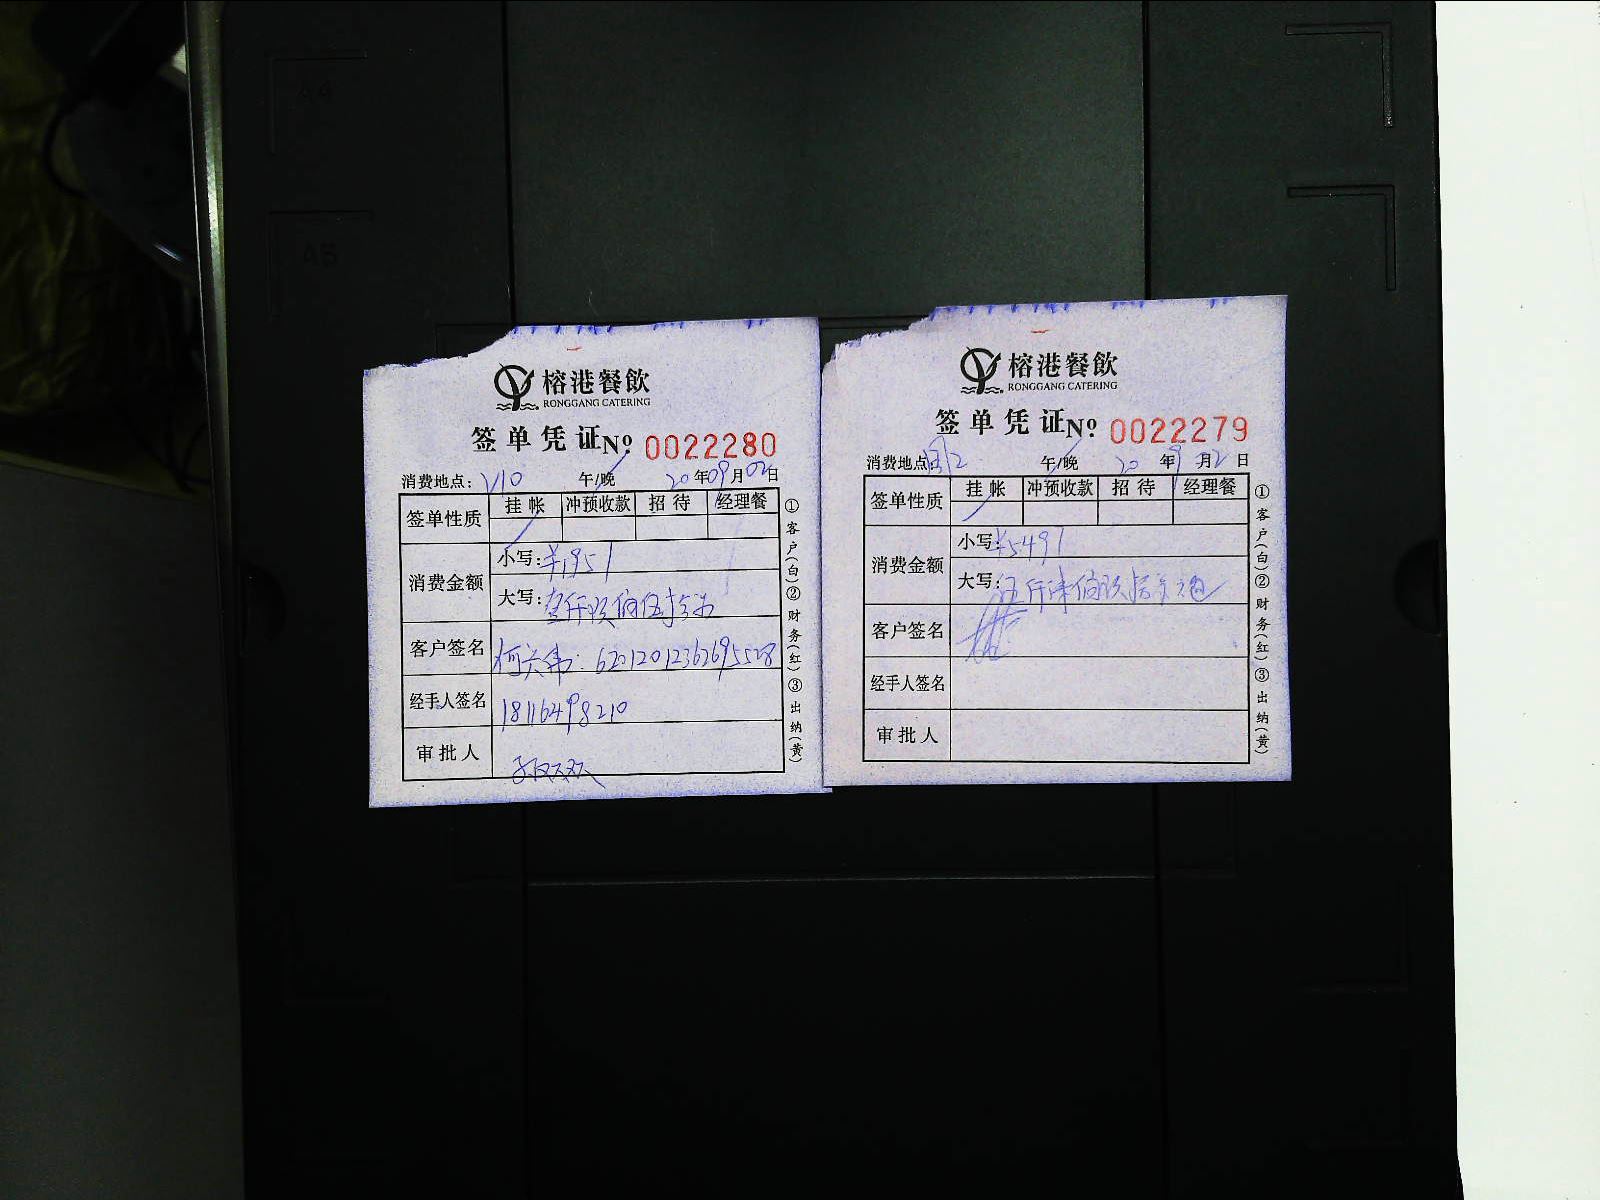 A4
A5
榕港餐飲
RONGGANG CATERING
签单凭证№ 0022280
消费地点: V10 午/晚 20年09月02日
签单性质 挂帐 冲预收款 招待 经理餐
消费金额 小写:¥1951
大写:
客户签名
经手人签名 18116498210
审批人
①客户(白)②财务(红)③出纳(黄)
榕港餐飲
RONGGANG CATERING
签单凭证№ 0022279
消费地点: 午/晚 20年9月2日
签单性质 挂帐 冲预收款 招待 经理餐
消费金额 小写:¥5491
大写:
客户签名
经手人签名
审批人
①客户(白)②财务(红)③出纳(黄)